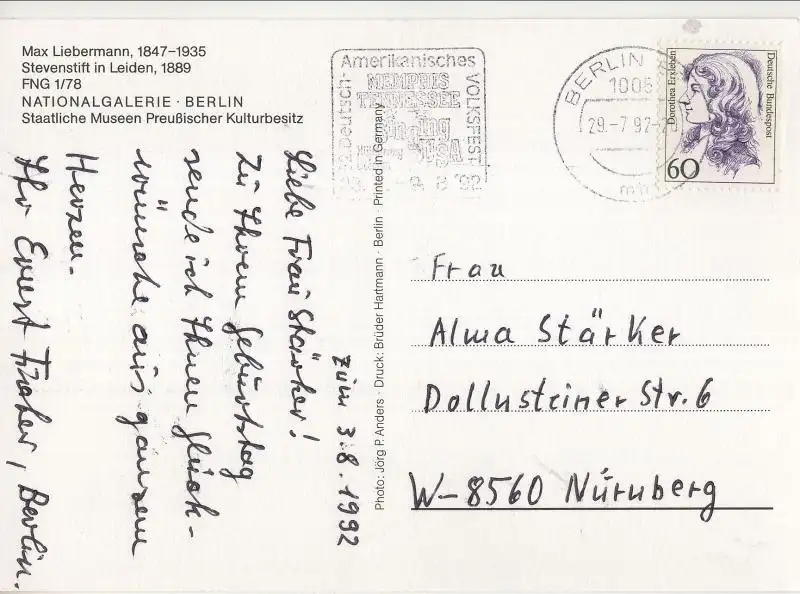 Max Liebermann, 1847–1935
Stevenstift in Leiden, 1889
FNG 1/78
NATIONALGALERIE · BERLIN
Staatliche Museen Preußischer Kulturbesitz
zum 3.8.1992
Liebe Frau Stärker!
Zu Ihrem Geburtstag
sende ich Ihnen Glück-
wünsche aus ganzem
Herzen.
Ihr Ernst, Berlin.
Photo: Jörg P. Anders · Druck: Brüder Hartmann · Berlin · Printed in Germany
Deutsch-
Amerikanisches
VOLKSFEST
MEMPHIS
TENNESSEE
USA
BERLIN
29.-7.92
Dorothea Erxleben
Deutsche Bundespost
60
Frau
Alma Stärker
Dollnsteiner Str. 6
W-8560 Nürnberg